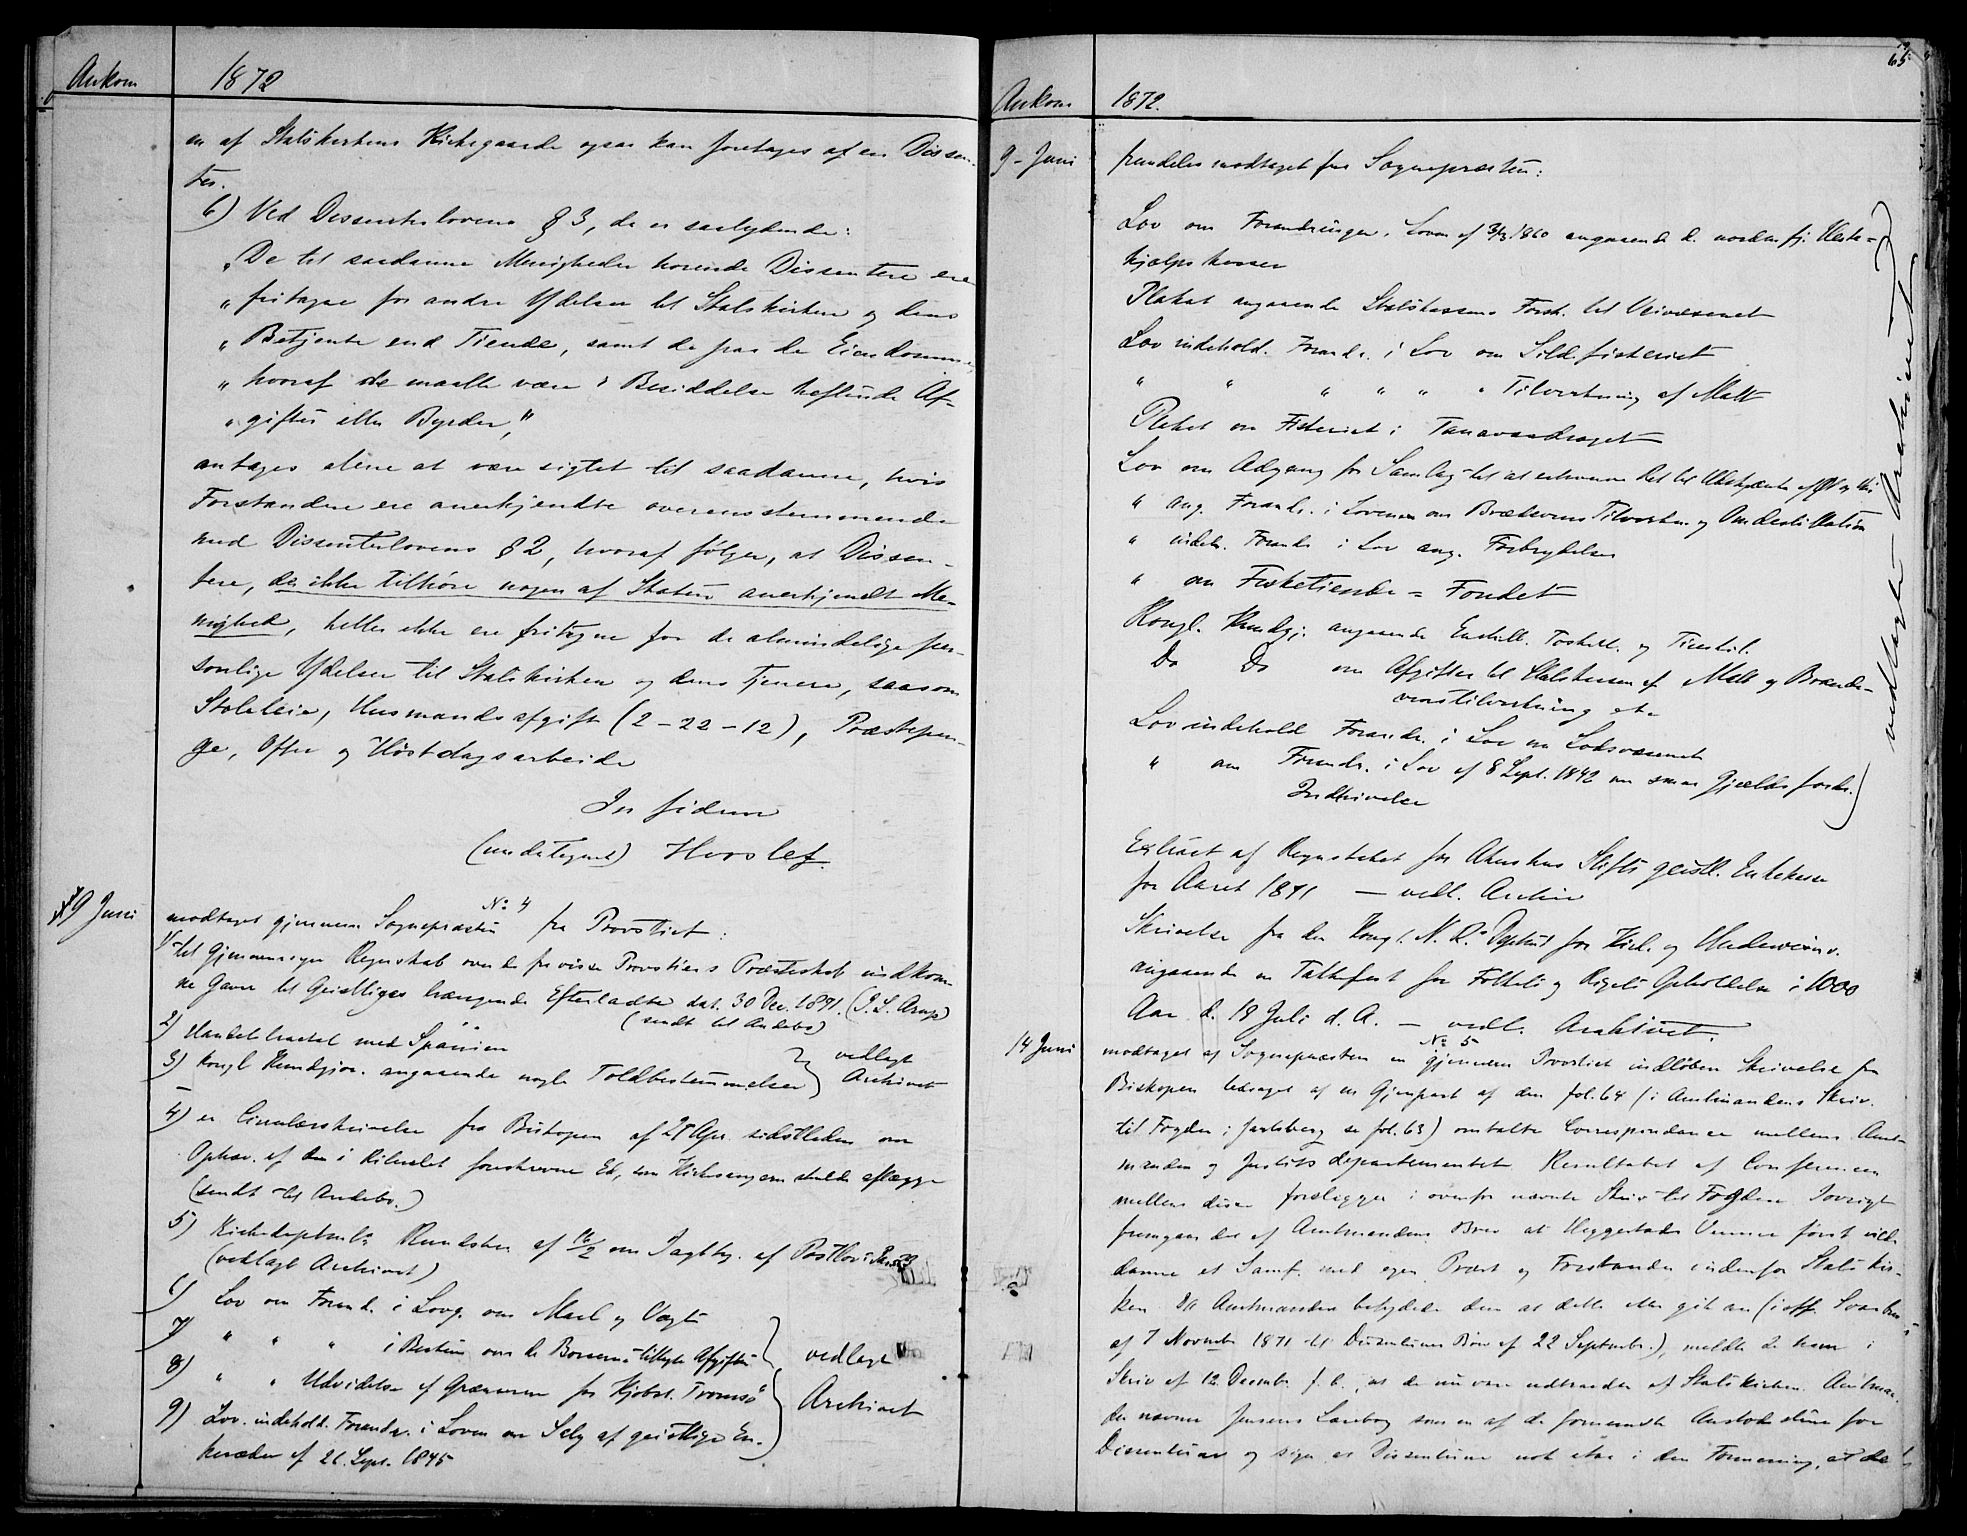 Ankom 1872
en af Statskirkens Kirkegaarde ogsaa kan foretages af en Dissen-
ter.
6) Ved Dissenterlovens § 3, der er saalydende:
"De til saadanne Menigheder hørende Dissentere ere
"fritagne for andre Ydelser til Statskirken og dens
"Betjente end Tiende, samt de paa de Eiendomme,
"hvoraf de maatte være i Besiddelse heftende Af-
"gifter eller Byrder,"
antages alene at være sigtet til saadanne, hvis
Forstandere ere anerkjendte overensstemmende
med Dissenterlovens § 2, hvoraf følger, at Dissen-
tere, der ikke tilhøre nogen af Staten anerkjendt Me-
nighed, heller ikke ere fritagne for de almindelige per-
sonlige Ydelser til Statskirken og dens Tjenere, saasom
Stoleleie, Husmandsafgift (2-22-12), Præstepen-
ge, Offer og Høstdagsarbeide
In fidem
(undertegnet) Horslef.
19 Juni
No 4
modtaget gjennem Sognepræsten fra Provstiet:
1) til Gjennemsyn Regnskab over de fra visse Provstiers Præsteskab indkom-
ne Gaver til Geistliges trængende Efterladte dat. 30 Dec. 1871. (J. L. Arup)
(sendt til Andebo)
2) Handelstractat med Spanien
3) Kongl Kundgjør. angaaende nogle Toldbestemmelser } vedlagt Archivet
4) en Circulærskrivelse fra Biskopen af 27 Apr. sidstleden om
Ophæv. af den i Ritualet foreskrevne Ed, som Kirkesangeren skulde aflægge
(sendt til Andebo.)
5) Kirkedeptmts Rundskr. af 16/2 om af Postlov
(vedlagt Archivet)
6) Lov om Forand. i Lovg. om Maal og Vægt
7) " " " i Bestem. om de Borgerne tillagte Afgifter
8) " " Udvidelse af Grændserne for Kjøbst. Tromsø
vedlagt
Archivet
9) Lov. indehold. Forandr. i Loven om Salg af geistlige En-
kesæder af 21. Sept. 1845
65
Ankom 1872.
9- Juni fremdeles modtaget fra Sognepræsten:
Lov om Forandringer i Loven af 3/3 1860 angaaende d. nordenfj.
hjælpskasser
Plakat angaaende Statskassens Forsk. til Veivæsenet
Lov indehold. Forandr. i Lov om Sildefiskeriet
" " " " " " Tilvirkning af Malt
Plakat om Fiskeriet i Tanavasdraget
Lov om Adgang for Samlag til at erhverve Ret til Udskjænkn. af Øl og Vin
" ang. Forandr. i Lovene om Brændevins Tilvirkn. og Omdestillation
" indeh. Forandr. i Lov ang. Forbrydelser
" om Fisketiende = Fondet
Kongl. Kundgj. angaaende Enskill. Toskill. og Tieskil.
Do Do om Afgifter til Statskassen af Malt og Brænde-
vinstilvirkning etc
Lov indehold Forandr. i Lov om Lodsvæsenet
" om Forandr. i Lov af 8 Sept. 1842 om smaa Gjælds fordr.
Inddrivelse
vedlagt Archivet
Extract af Regnskabet for Akershus Stifts geistl. Enkekasse
for Aaret 1871 – vedl. Archiv
Skrivelse fra den Kongl. N. R.s Deptmt for Kirk. og Underviisnv.
angaaende en Takkefest for Folkets og Rigets Opholdelse i 1000
Aar d. 18 Juli d. A. – vedl. Archivet.
14 Juni
No 5
modtaget af Sognepræsten en gjennem Provstiet indløben Skrivelse fra
Biskopen ledsaget af en Gjenpart af den fol. 64 (i Amtmandens Skriv.
til Fogden i Jarlsberg se fol. 63) omtalte Correspondance mellem Amt-
manden og Justitsdepartementet. Resultatet af Conferencen
mellem disse foreligger i ovenfor nævnte Skriv til Fogden. Iøvrigt
fremgaar det af Amtmandens Brev at Heggertads Venner først vilde
danne et Samf. med egen Præst og Forstander indenfor Statskir-
ken. Da Amtmanden betydede dem at dette ikke gik an (i off. Svarbrev
af 7 November 1871 til Dissenternes Brev af 22 September), meldte de ham i
Skriv af 12 December f. A., at de nu vare udtraadte af Statskirken. Amtman-
den nævner Jensens Lærebog som en af de fornemste Anstødsstene for
Dissenterne og siger, at Dissenterne nok ere i den Formening, at de